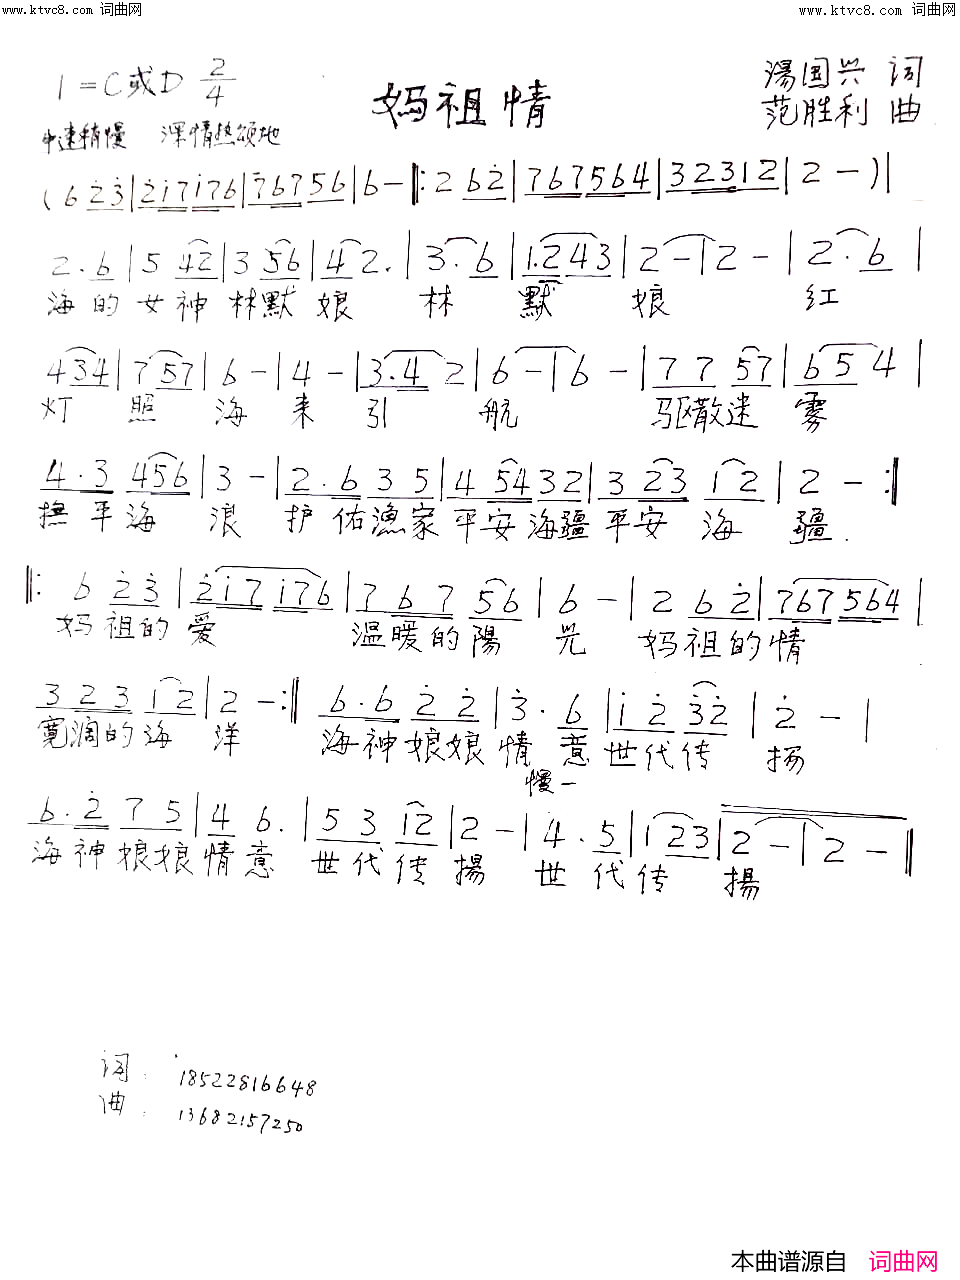 www.ktvc8.com 词曲网 www.ktvc8.com 词曲网
1=C或D 2/4 妈祖情 湯国兴 词
范胜利 曲
中速稍慢 深情热颂地
(6 2̇3̇|2̇1̇71̇76|767 56|6-‖:2 62̇|767564|323112|2-)|
2.6|5 42|3 56|42.|3.6|1.243|2-|2-|2.6|
海的女神林默娘 林默娘 红
434|757|6-|4-|3.42|6-|6-|7757|654|
灯照海来引航 驱散迷雾
4.3 456|3-|2.6 35|4 54 32|3 23 12|2-:‖
撫平海浪护佑渔家平安海疆平安海疆.
‖:6 2̇3̇|2̇1̇7 1̇76|767 56|6-|2 62̇|767564|
妈祖的爱 温暖的陽光 妈祖的情
323 12|2-:‖6.6 2̇2̇|3̇.6|1̇2̇ 3̇2̇|2̇-|
寬阔的海洋 海神娘娘情意世代传扬
慢一
6.2̇ 75|4 6.|53 12|2-|4.5|1 23|2-|2-‖
海神娘娘情意 世代传揚 世代传揚
词: 18522816648
曲: 13682157250
本曲谱源自 词曲网